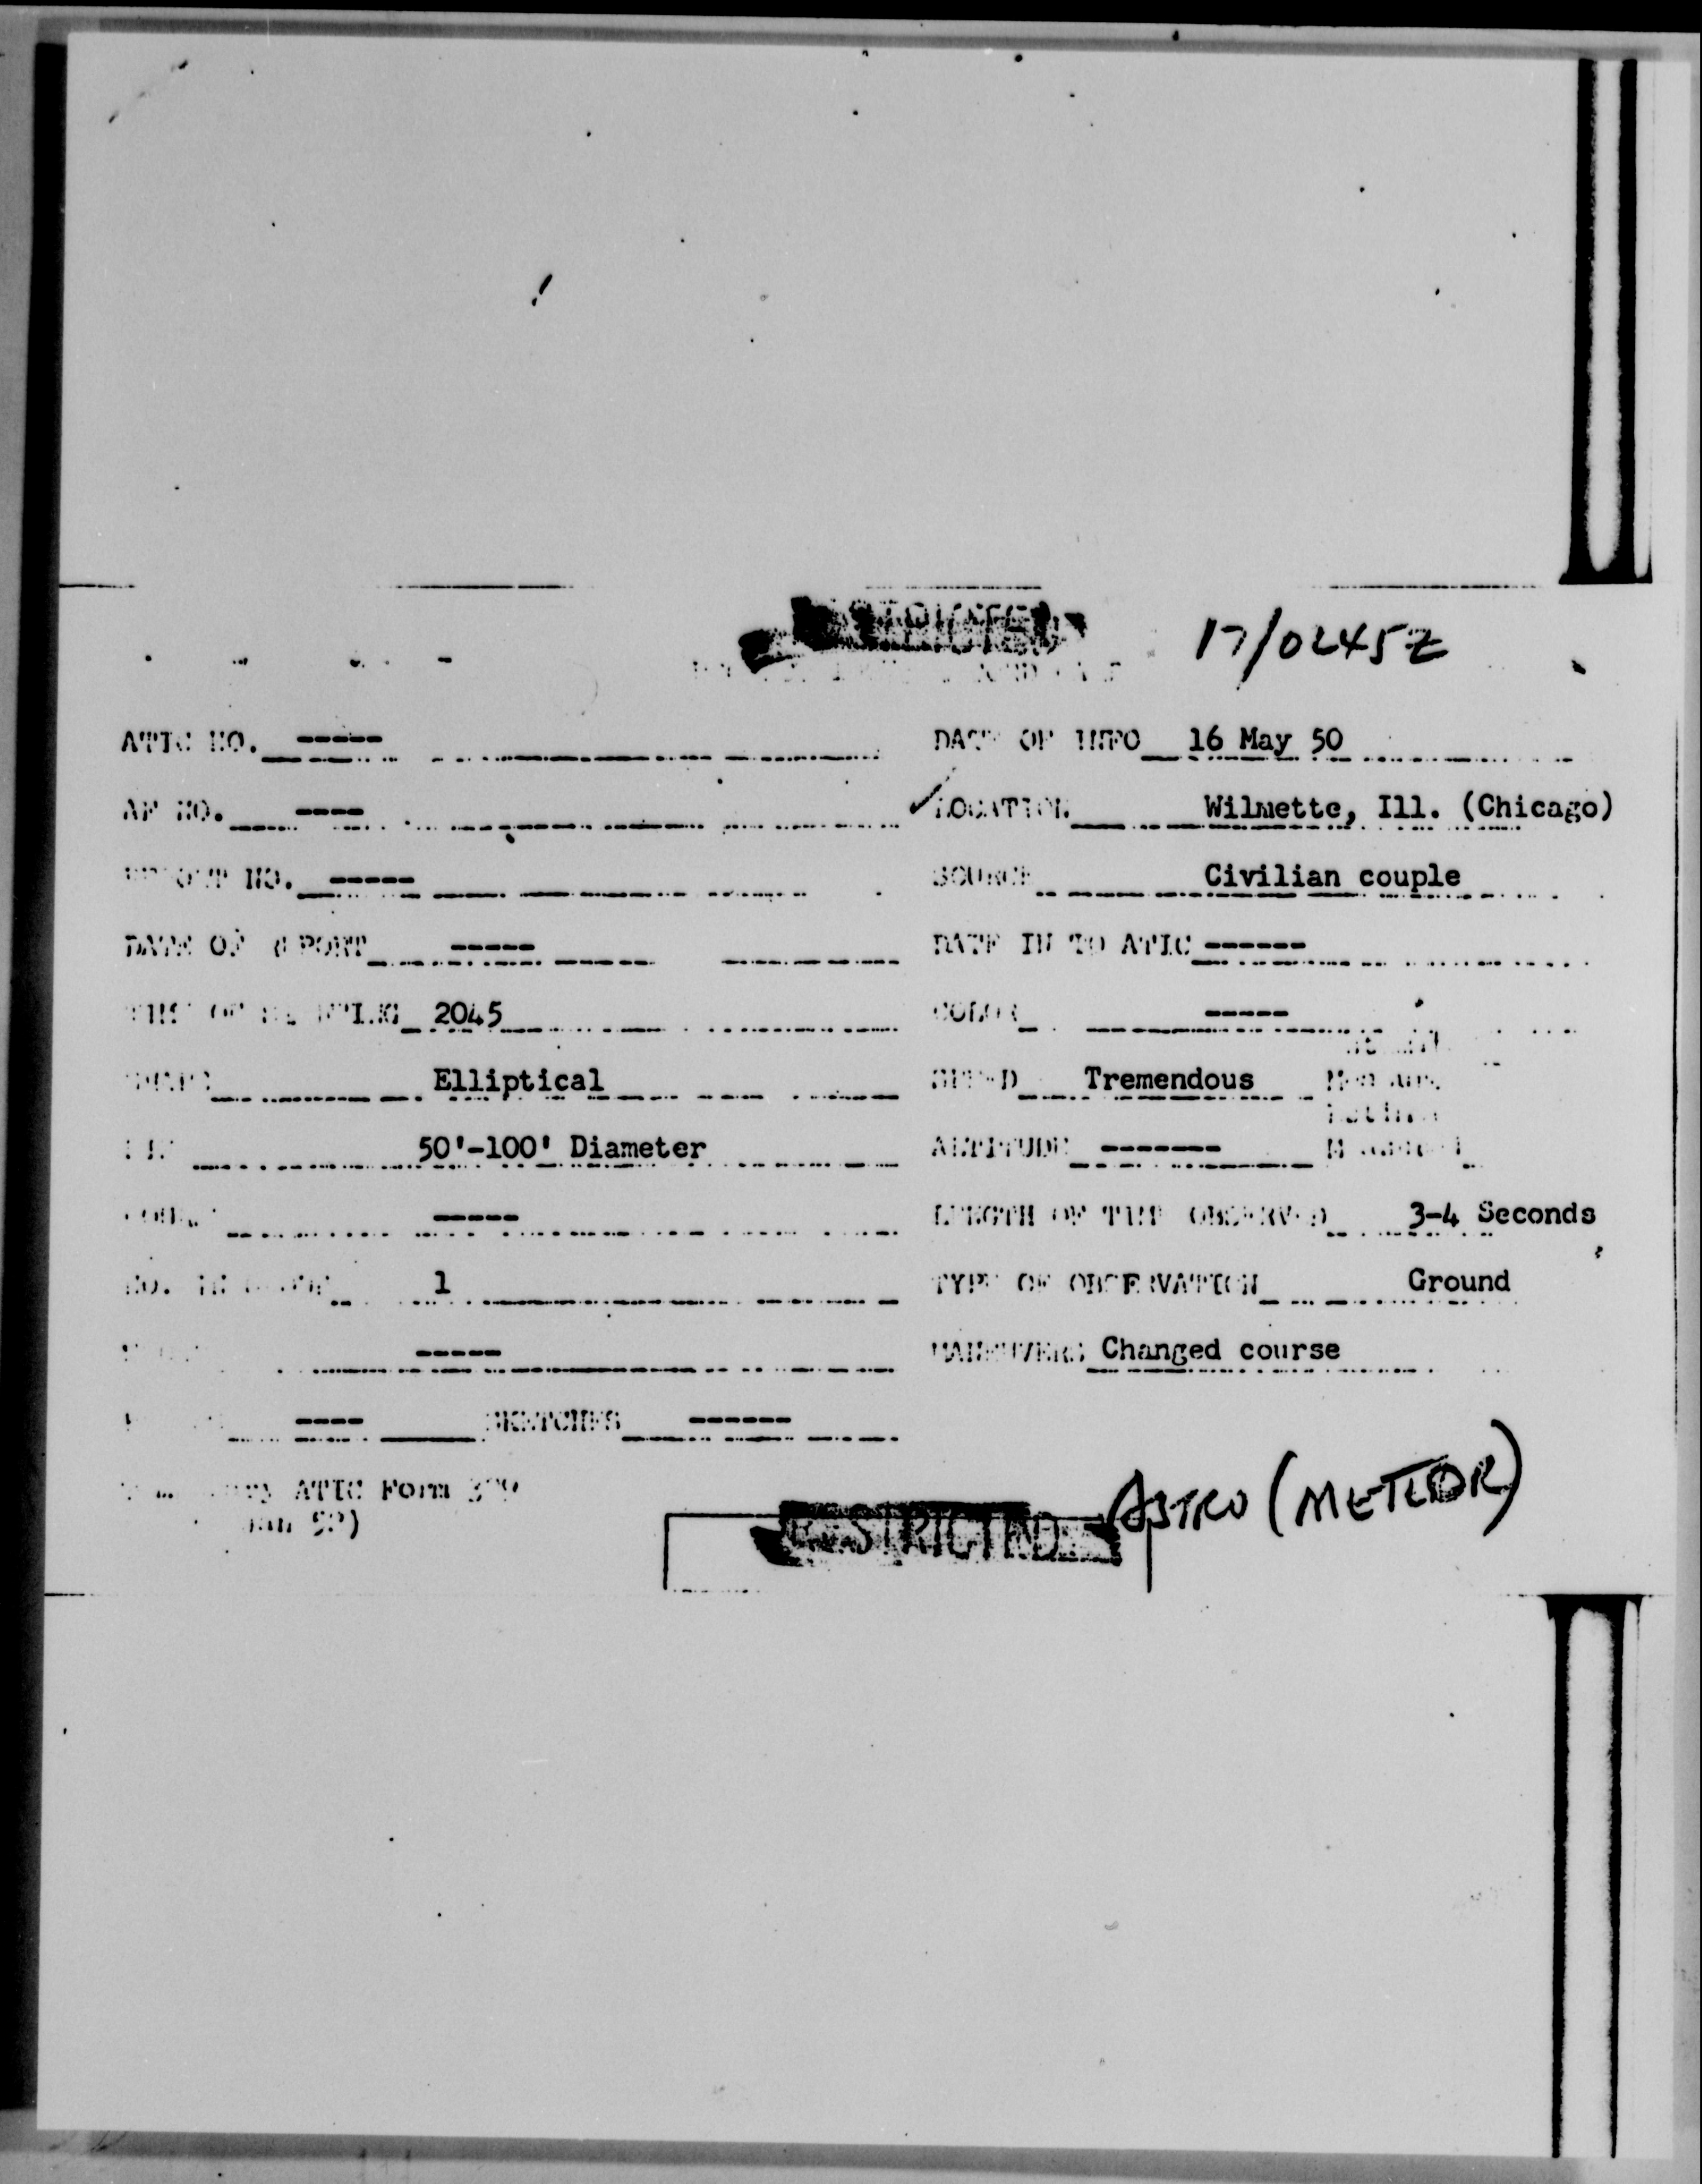 17/0245Z
ATIC NO. ----- DATE OF INFO 16 May 50
AF NO. ---- ✓LOCATION Wilmette, Ill. (Chicago)
NO. ----- SOURCE Civilian couple
DATE OF REPORT ----- DATE IN TO ATIC ------
TIME OF SIGHTING 2045 COLOR -----
SHAPE Elliptical SPEED Tremendous
50'-100' Diameter ALTITUDE -------
COURSE ----- LENGTH OF TIME OBSERVED 3-4 Seconds
NO. IN GROUP 1 TYPE OF OBSERVATION Ground
----- MANEUVERS Changed course
---- SKETCHES ------
ATIC Form
ASTRO (METEOR)
RESTRICTED